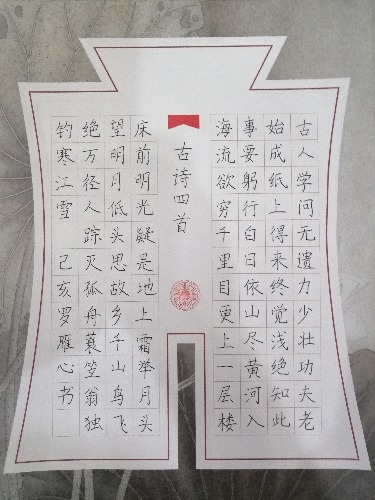 古人学问无遗力少壮功夫老
始成纸上得来终觉浅绝知此
事要躬行白日依山尽黄河入
海流欲穷千里目更上一层楼
古诗四首
床前明光疑是地上霜举月头
望明月低头思故乡千山鸟飞
绝万径人踪灭孤舟蓑笠翁独
钓寒江雪 己亥罗雁心书